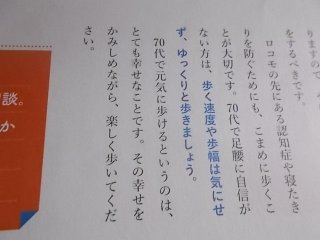 りますので、
をするべきです。
ロコモの先にある認知症や寝たき
りを防ぐためにも、こまめに歩くこ
とが大切です。70代で足腰に自信が
ない方は、歩く速度や歩幅は気にせ
ず、ゆっくりと歩きましょう。
70代で元気に歩けるというのは、
とても幸せなことです。その幸せを
かみしめながら、楽しく歩いてくだ
さい。
談。
か